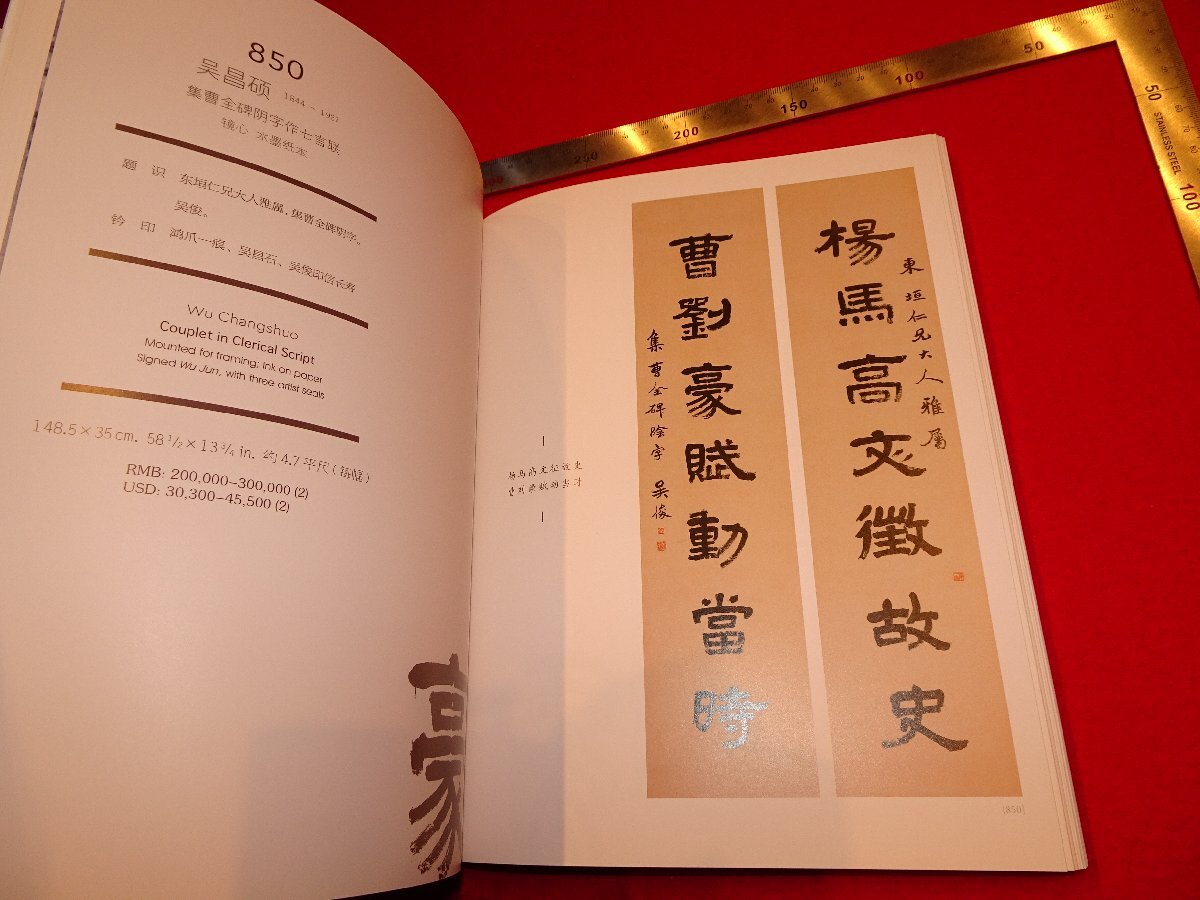 850
吴昌硕 1844 - 1927
集曹全碑阴字作七言联
镜心 水墨纸本
题 识 东垣仁兄大人雅属,集曹全碑阴字。
吴俊。
钤 印 鸿爪一痕、吴昌石、吴俊印信长寿
Wu Changshuo
Couplet in Clerical Script
Mounted for framing; ink on paper
Signed Wu Jun, with three artist seals
148.5×35cm. 58 1/2×13 3/4 in. 约 4.7 平尺(每幅)
RMB: 200,000–300,000 (2)
USD: 30,300–45,500 (2)
豪
楊馬高文徵故史
東垣仁兄大人雅屬
曹劉豪賦動當時
集曹全碑陰字 吴俊
(850)
50
100
150
200
250
50
100
STAINLESS STEEL